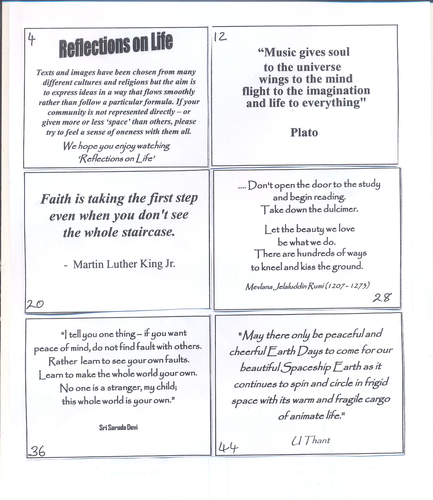 4
Reflections on Life
Texts and images have been chosen from many
different cultures and religions but the aim is
to express ideas in a way that flows smoothly
rather than follow a particular formula. If your
community is not represented directly – or
given more or less 'space' than others, please
try to feel a sense of oneness with them all.
We hope you enjoy watching
'Reflections on Life'
12
"Music gives soul
to the universe
wings to the mind
flight to the imagination
and life to everything"
Plato
Faith is taking the first step
even when you don't see
the whole staircase.
- Martin Luther King Jr.
20
.... Don't open the door to the study
and begin reading.
Take down the dulcimer.
Let the beauty we love
be what we do.
There are hundreds of ways
to kneel and kiss the ground.
Mevlana Jelaluddin Rumi (1207 - 1273)
28
"I tell you one thing – if you want
peace of mind, do not find fault with others.
Rather learn to see your own faults.
Learn to make the whole world your own.
No one is a stranger, my child;
this whole world is your own."
Sri Sarada Devi
36
"May there only be peaceful and
cheerful Earth Days to come for our
beautiful Spaceship Earth as it
continues to spin and circle in frigid
space with its warm and fragile cargo
of animate life."
U Thant
44